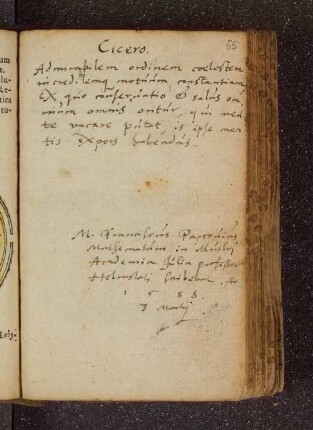 55
Cicero.
Admirabilem ordinem coelestem
incredilemq motuum constantiam
Ex quo conservatio & salus om
nium omnis oritur, qui men
te vacare putat, is ipse men
tis expers habendus.
M. Franciscus Parcovius
Mathematum in
Academia Julia professor
Helmstati
1 5 8 8.
3 Maij